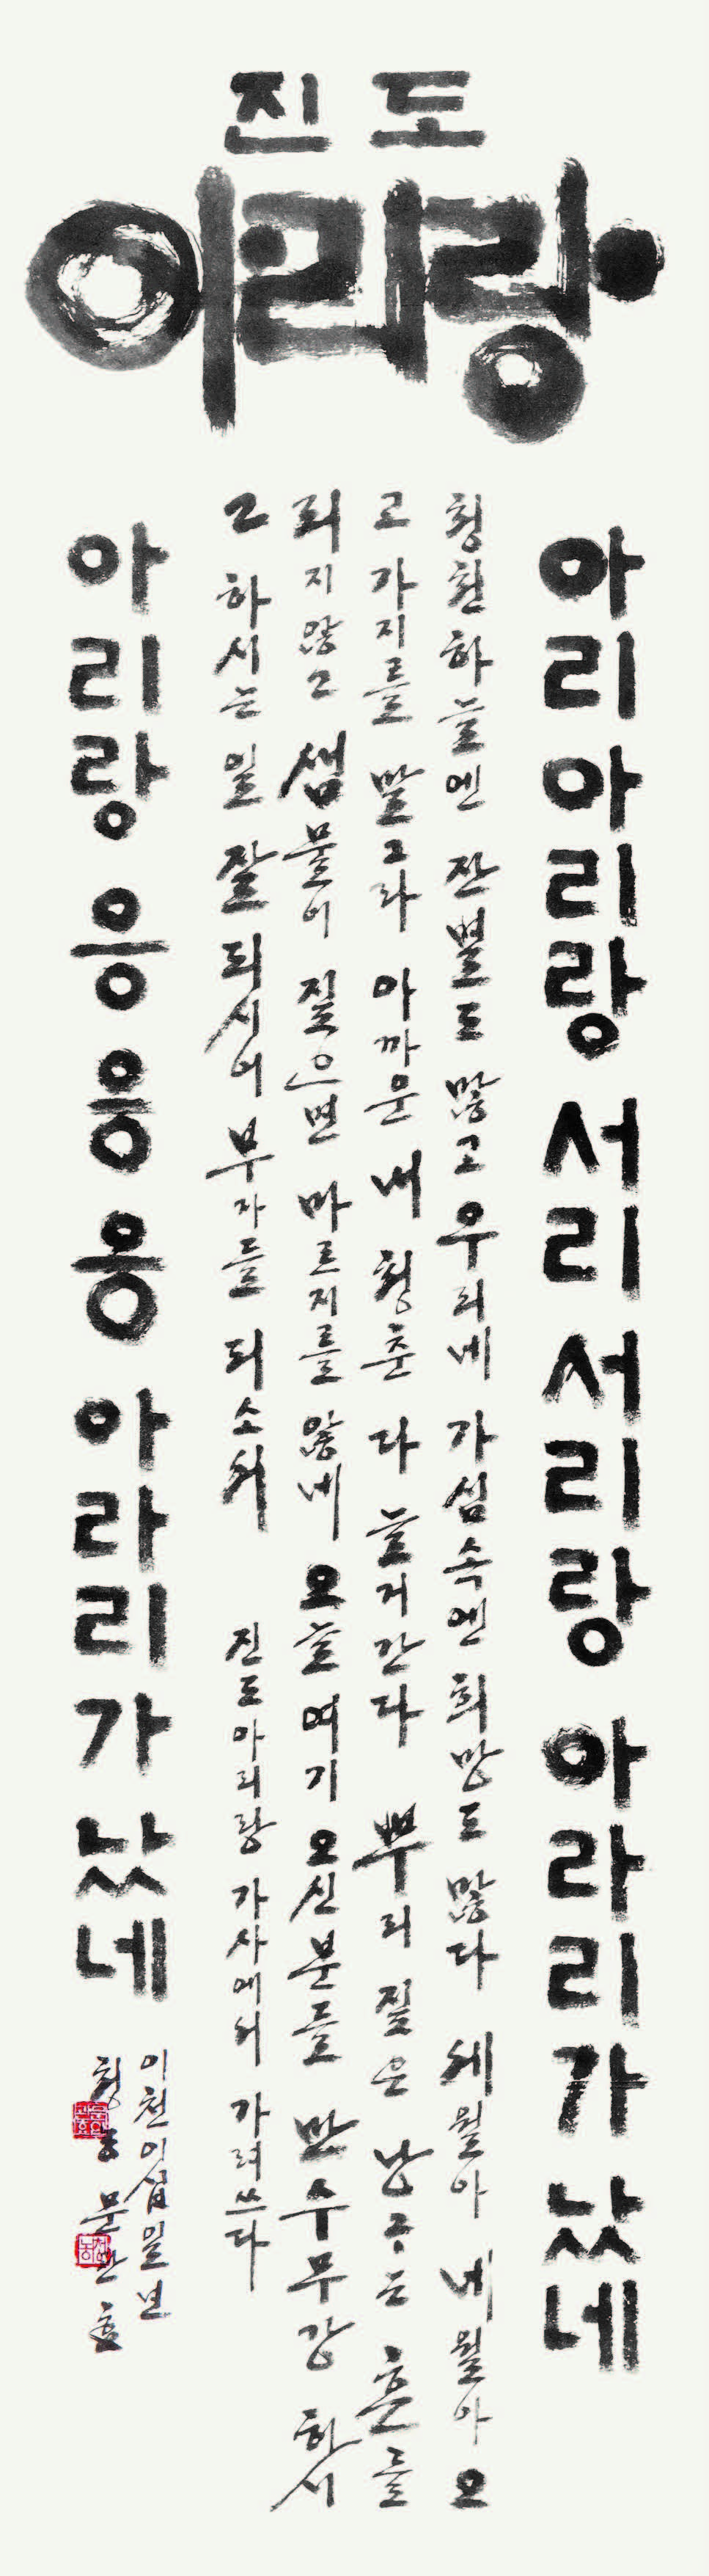 진도
아리랑
아리아리랑 서리서리랑 아라리가 났네
청천하늘엔 잔별도 많고 우리네 가심속엔 희망도 많다 세월아 네월아 오
고가지를 말그라 아까운 내 청춘 다 늘거간다 뿌리 짚은 낭구는 흔들
리지않고 샘물이 짚으면 마르지를 않네 오늘 여기 오신분들 만수무강 하시
고 하시는 일 잘 되시어 부자들 되소서 진도아리랑 가사에서 가려쓰다
아리랑 응 응 응 아라리가 났네
이천이십일년
청농 문관효